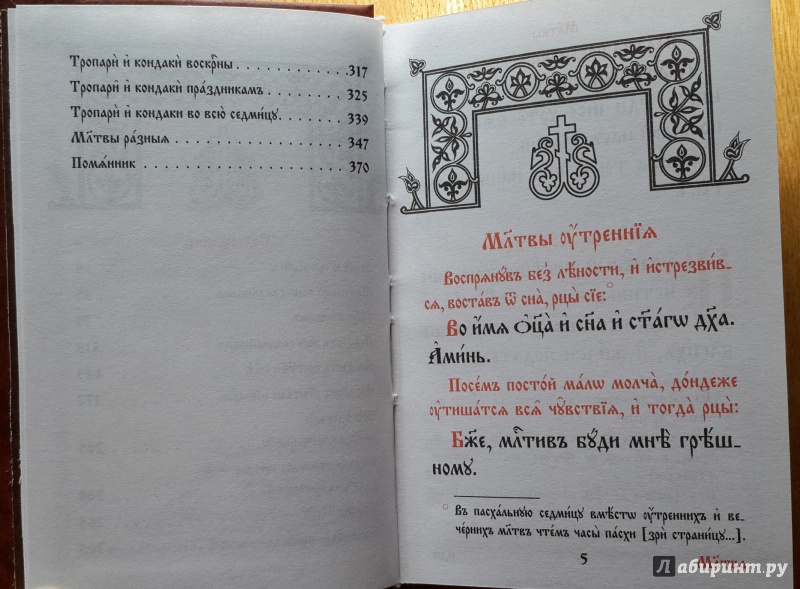 Тропари̑ и҆ кондаки̑ воскрⷭ҇ны . . . . . . . . . . . . 317
Тропари̑ и҆ кондаки̑ пра́здникамъ . . . . . . . . . 325
Тропари̑ и҆ кондаки̑ во всю̀ седми́цꙋ . . . . . . . 339
Мл҃твы ра́зныѧ . . . . . . . . . . . . . . . . . . . 347
Помѧ́нник . . . . . . . . . . . . . . . . . . . . . 370
Мл҃твы
Мл҃твы ᲂу҆́треннїѧ
Воспрѧнꙋ́въ без̾ лѣ́ности, и҆ и҆стрезви́в-
сѧ, воста́въ ѿ сна̀, рцы̀ сїѐ:
Во и҆́мѧ ѻ҆ц҃а̀ и҆ сн҃а и҆ ст҃а́гѡ дх҃а.
А҆ми́нь.
Посе́мъ посто́й ма́лѡ молча̀, до́ндеже
ᲂу҆тиша́тсѧ всѧ̑ чꙋ̑вствїѧ, и҆ тогда̀ рцы̀:
Бж҃е, млⷭ҇тивъ бꙋ́ди мнѣ̀ грѣ́ш-
номꙋ.
Въ пасха́льнꙋю седми́цꙋ вмѣ́стѡ ᲂу҆́треннихъ и҆ ве-
че́рнихъ мл҃твъ чте́мъ часы̀ па́схи [зрѝ страни́цꙋ...].
5
Мл҃тва
Лабиринт.ру